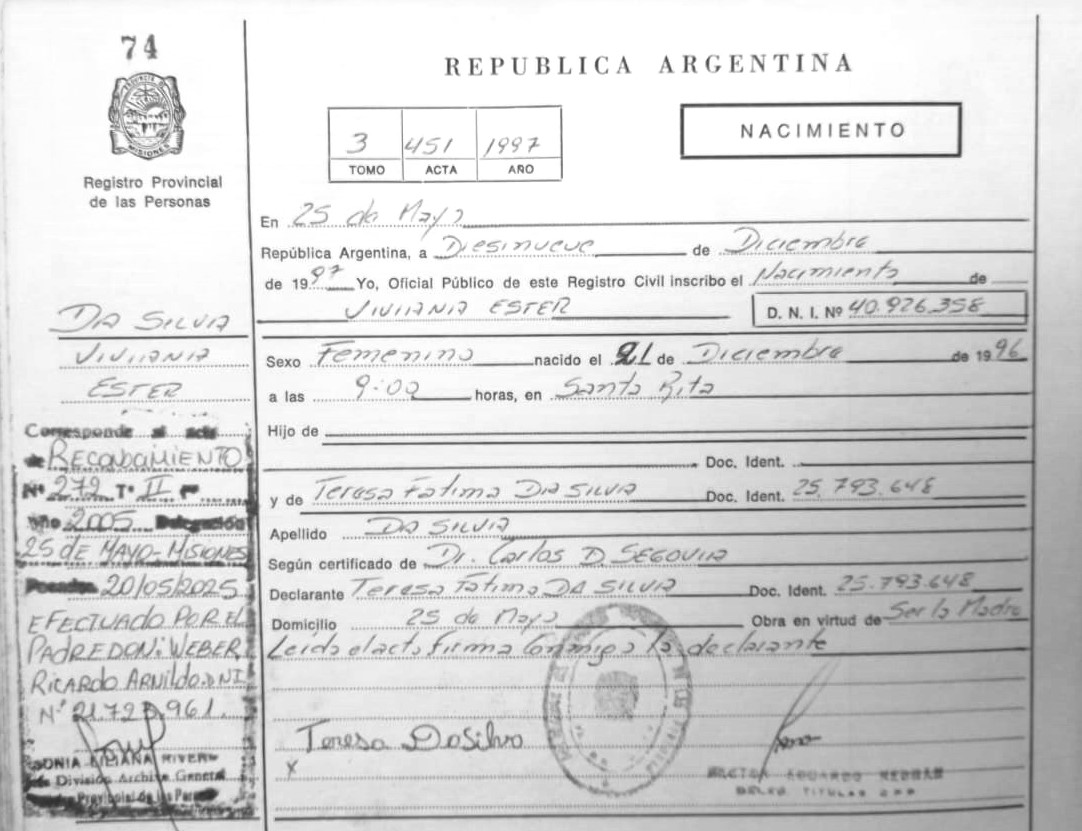 74
PROVINCIA D MISIONES
Registro Provincial
de las Personas
REPUBLICA ARGENTINA
NACIMIENTO
3 451 1997
TOMO ACTA AÑO
En 25 de Mayo
República Argentina, a Diesinueve de Diciembre
de 1997 Yo, Oficial Público de este Registro Civil inscribo el Nacimiento de
VIVIANA ESTER D. N. I. Nº 40.926.358
Sexo Femenino nacido el 21 de Diciembre de 1996
a las 9:00 horas, en Santa Rita
Hijo de
Doc. Ident.
y de Teresa Fatima DA SILVA Doc. Ident. 25.793.648
Apellido DA SILVA
Según certificado de Dr. Carlos D. SEGOVIA
Declarante Teresa Fatima DA SILVA Doc. Ident. 25.793.648
Domicilio 25 de Mayo Obra en virtud de Ser la Madre
Leida el acta firma conmigo la declarante
Teresa DaSilva
x
DA SILVA
VIVIANA
ESTER
Corresponde al acta
de RECONOCIMIENTO
Nº 272 Tº II Fº
Año 2005 Delegación
25 DE MAYO-MISIONES
20/05/2025
EFECTUADO POR EL
PADRE DON: WEBER
RICARDO ARNILDO. DNI
Nº 21.723.961.
SONIA LILIANA RIVERO
División Archivo General
Provincial de las Personas